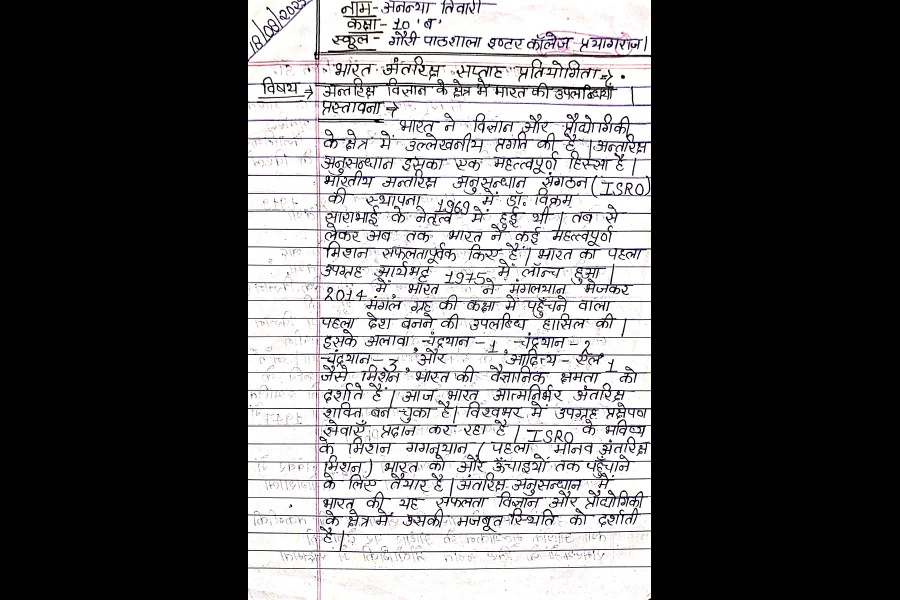 18/08/2025
नाम- अनन्या तिवारी
कक्षा - 10 'ब'
स्कूल - गौरी पाठशाला इण्टर कॉलेज प्रयागराज।
भारत अंतरिक्ष सप्ताह प्रतियोगिता ⇒
विषय ⇒ अन्तरिक्ष विज्ञान के क्षेत्र में भारत की उपलब्धियाँ |
प्रस्तावना ⇒
भारत ने विज्ञान और प्रौद्योगिकी
के क्षेत्र में उल्लेखनीय प्रगति की है | अन्तरिक्ष
अनुसन्धान इसका एक महत्वपूर्ण हिस्सा है |
भारतीय अन्तरिक्ष अनुसन्धान संगठन (ISRO)
की स्थापना 1969 में डॉ. विक्रम
साराभाई के नेतृत्व में हुई थी | तब से
लेकर अब तक भारत ने कई महत्वपूर्ण
मिशन सफलतापूर्वक किए हैं | भारत का पहला
उपग्रह आर्यभट्ट 1975 में लॉन्च हुआ |
2014 में भारत ने मंगलयान भेजकर
मंगल ग्रह की कक्षा में पहुँचने वाला
पहला देश बनने की उपलब्धि हासिल की |
इसके अलावा चंद्रयान - 1 चंद्रयान - 2
चंद्रयान - 3 और आदित्य - एल 1
जैसे मिशन भारत की वैज्ञानिक क्षमता को
दर्शाते हैं | आज भारत आत्मनिर्भर अंतरिक्ष
शक्ति बन चुका है | विश्वभर में उपग्रह प्रक्षेपण
सेवाएँ प्रदान कर रहा है | ISRO के भविष्य
के मिशन गगनयान (पहला मानव अंतरिक्ष
मिशन) भारत को और ऊँचाइयों तक पहुँचाने
के लिए तैयार है | अंतरिक्ष अनुसन्धान में
भारत की यह सफलता विज्ञान और प्रौद्योगिकी
के क्षेत्र में उसकी मजबूत स्थिति को दर्शाती
है |